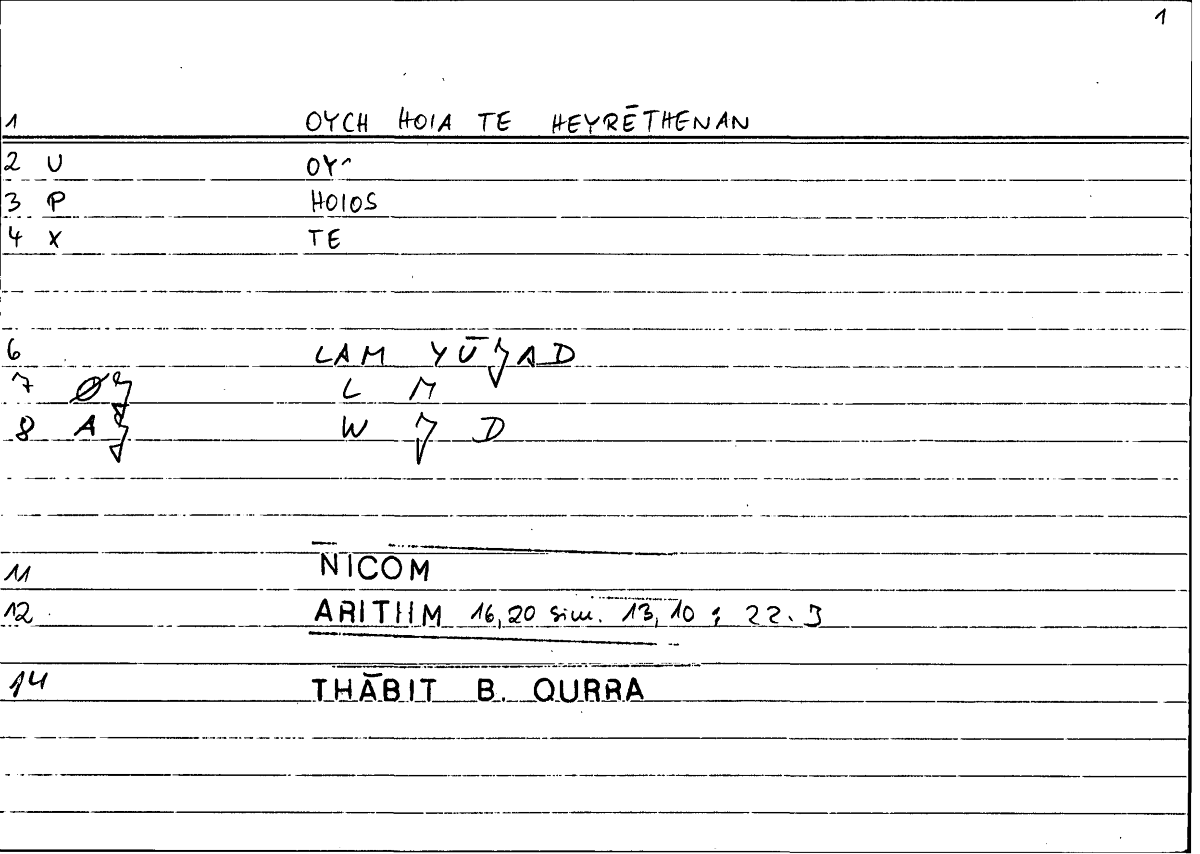 1
1 OYCH HOIA TE HEYRĒTHENAN
2 U OY^
3 P HOIOS
4 X TE
6 LAM YŪǦAD
7 L M
8 W Ǧ D
11 NICOM
12 ARITHM 16,20 sim. 13,10 ; 22.
14 THĀBIT B. QURRA